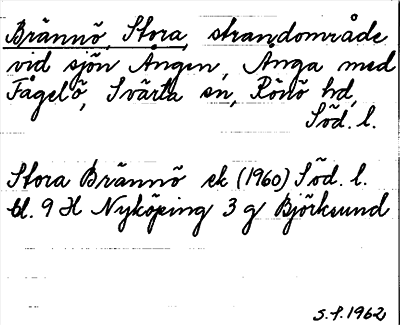 Brännö, Stora, strandområde
vid sjön Ången, Ånga med
Fågelö, Svärta sn, Rönö hd,
Söd. l.
Stora Brännö ek (1960) Söd. l.
bl. 9 H Nyköping 3 g Björksund
S.f. 1962